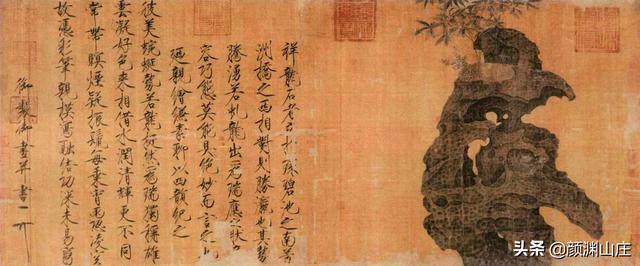 祥龍石者立於環碧池之南芳
洲橋之西相對則勝瀛也其勢
騰湧若虬龍出為瑞應之狀奇
容巧態莫能具絕妙而言之也
廼親繪縑素聊以四韻紀之
彼美蜿蜒勢若龍挺然為瑞獨稱雄
雲凝好色來相借水潤清輝更不同
常帶暝煙疑振鬣每乘宵雨恐凌空
故憑彩筆親模寫融結功深未易窮
御製御畫并書
头条 @颜渊山庄